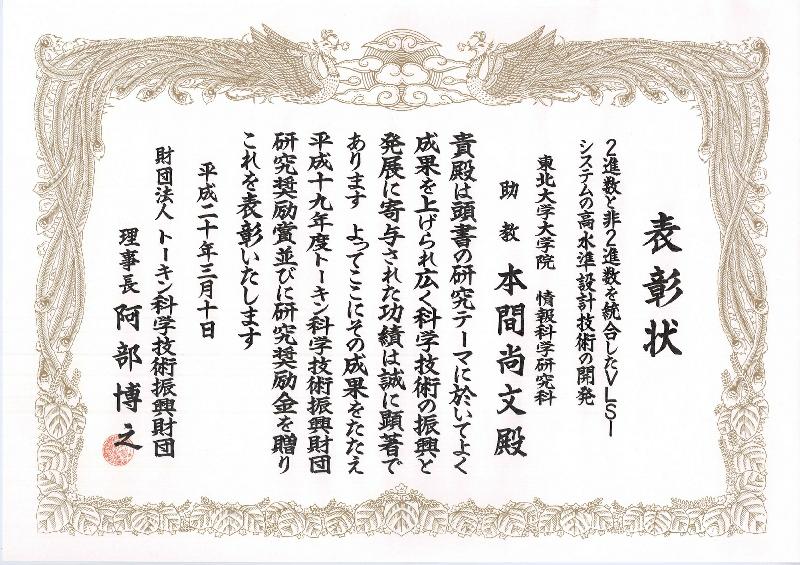 表彰状
2進数と非2進数を統合したVLSI
システムの高水準設計技術の開発
東北大学大学院 情報科学研究科
助教 本間尚文殿
貴殿は頭書の研究テーマに於いてよく
成果を上げられ広く科学技術の振興と
発展に寄与された功績は誠に顕著で
あります よってここにその成果をたたえ
平成十九年度トーキン科学技術振興財団
研究奨励賞並びに研究奨励金を贈り
これを表彰いたします
平成二十年三月十日
財団法人 トーキン科学技術振興財団
理事長 阿部博之